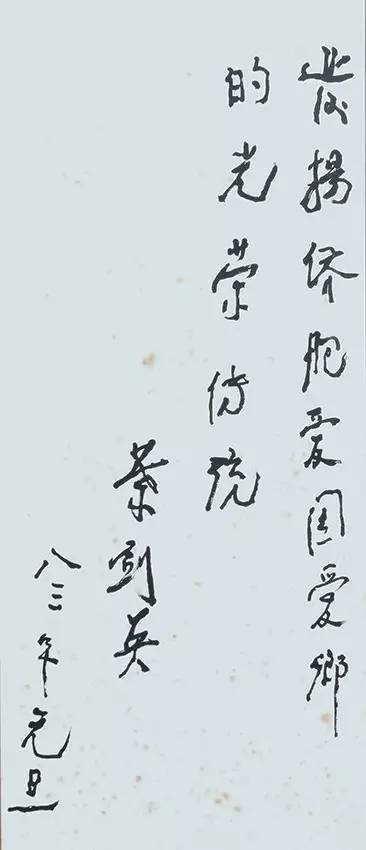 發揚侨胞爱国爱鄉
的光荣传统
葉剑英
八三年元旦